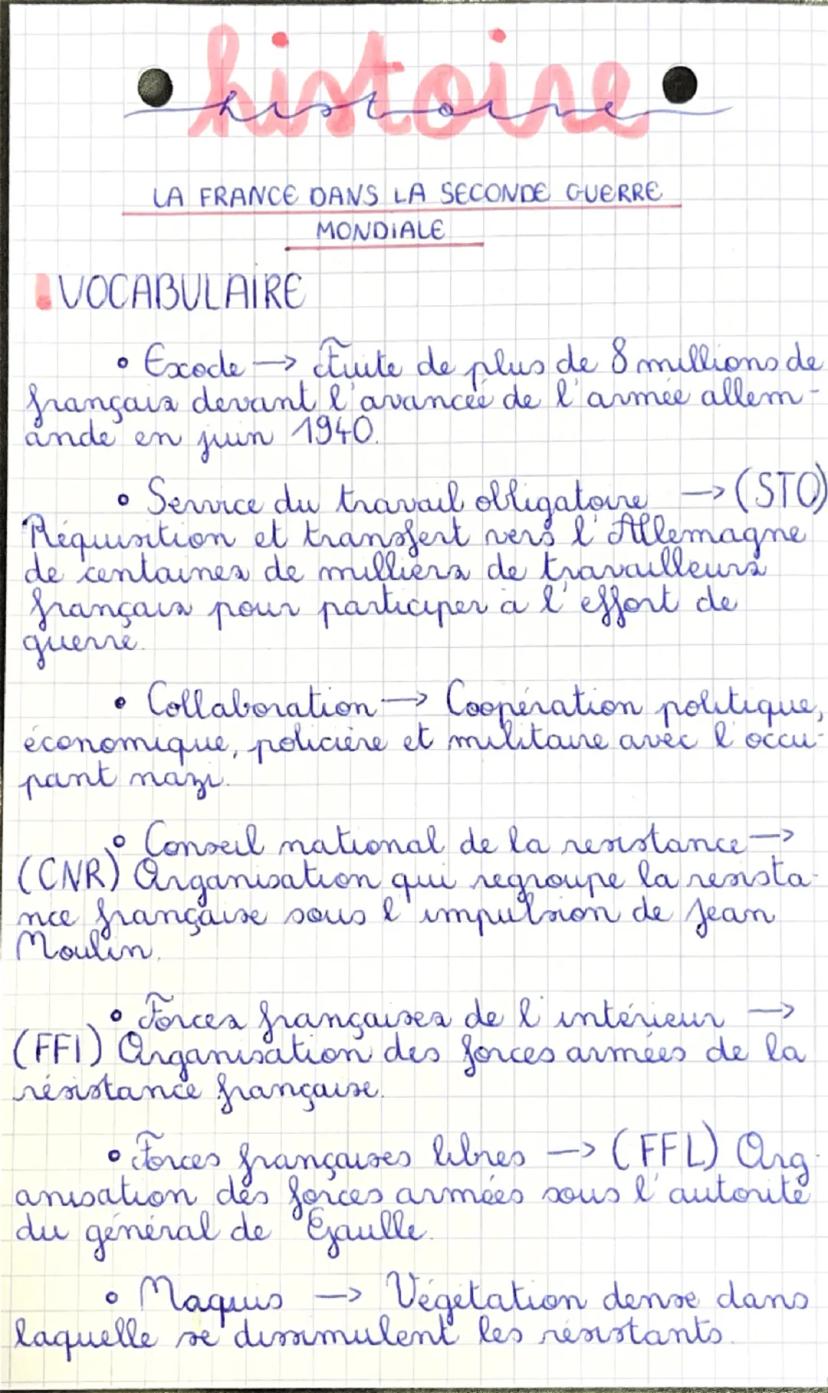 histoire
histoire
LA FRANCE DANS LA SECONDE GUERRE
MONDIALE
VOCABULAIRE
• Exode → Fuite de plus de 8 millions de
français devant l'avancée de l'armée allem-
ande en juin 1940.
• Service du travail obligatoire → (STO)
Réquisition et transfert vers l'Allemagne
de centaines de milliers de travailleurs
français pour participer à l'effort de
guerre.
• Collaboration → Coopération politique,
économique, policière et militaire avec l'occu-
pant nazi.
• Conseil national de la resistance →
(CNR) Organisation qui regroupe la résista-
nce française sous l'impulsion de Jean
Moulin.
• Forces françaises de l'intérieur →
(FFI) Organisation des forces armées de la
résistance française.
• Forces françaises libres → (FFL) Org-
anisation des forces armées sous l'autorité
du général de Gaulle.
• Maquis → Végétation dense dans
laquelle se dissimulent les résistants.